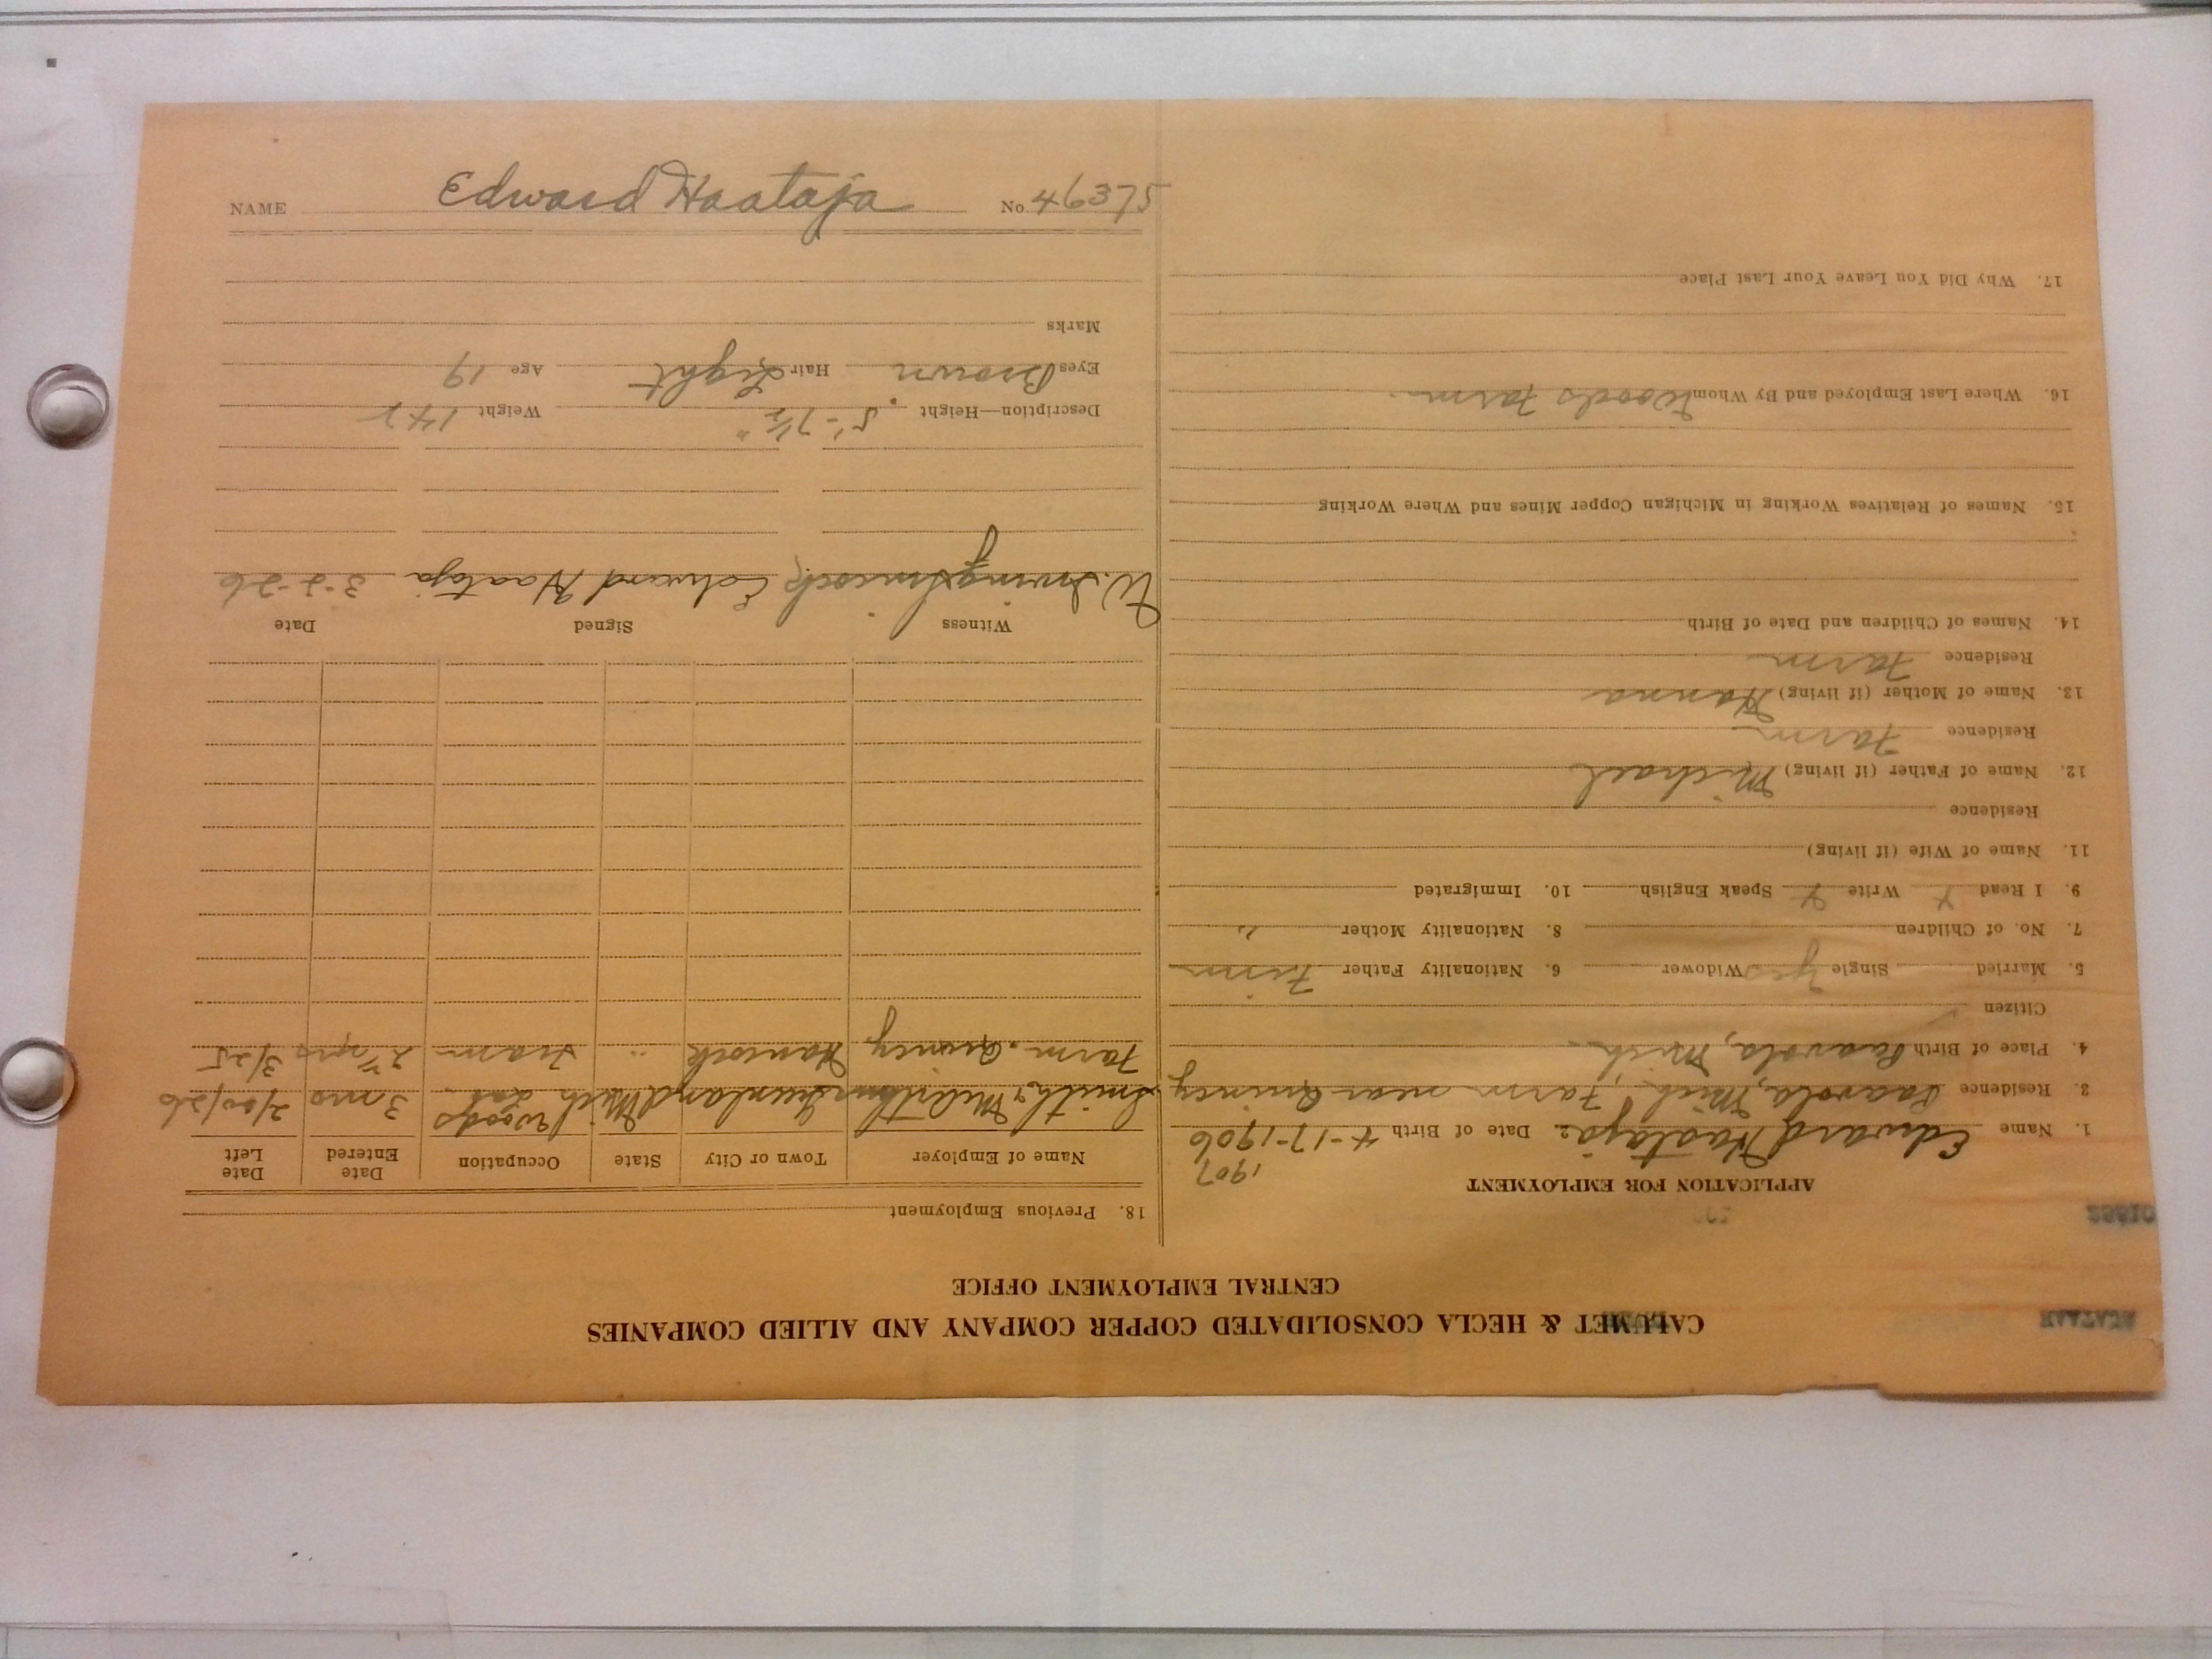 HAATAJA
CALUMET & HECLA CONSOLIDATED COPPER COMPANY AND ALLIED COMPANIES
CENTRAL EMPLOYMENT OFFICE
APPLICATION FOR EMPLOYMENT
1907
1. Name Edward Haataja 2. Date of Birth 4-17-1906
3. Residence Paavola, Mich. Farm near Quincy
4. Place of Birth Paavola, Mich.
Citizen
5. Married Single Yes Widower 6. Nationality Father Finn
7. No. of Children 8. Nationality Mother "
9. I Read x Write x Speak English 10. Immigrated
11. Name of Wife (if living)
Residence
12. Name of Father (if living) Michael
Residence Farm
13. Name of Mother (if living) Hanna
Residence Farm
14. Names of Children and Date of Birth
15. Names of Relatives Working in Michigan Copper Mines and Where Working
16. Where Last Employed and By Whom Woods Farm.
17. Why Did You Leave Your Last Place
18. Previous Employment
Name of Employer Town or City State Occupation Date Entered Date Left
Smith & Greenland Mich Woods Lab. 3 mo 2/20/26
Farm. Quincy Hancock " Farm 2 yrs 3/25
Witness Signed Date
W. Irving Edward Haataja 3-2-26
Description—Height 5'-7½" Weight 142
Eyes Brown Hair Light Age 19
Marks
NAME Edward Haataja No 46375